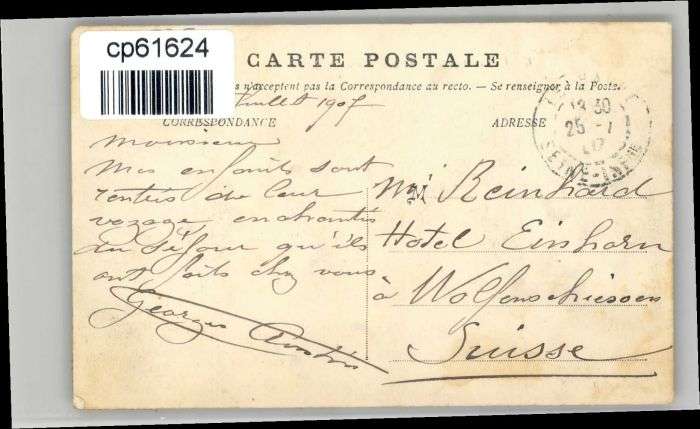 cp61624
CARTE POSTALE
n'acceptent pas la Correspondance au recto. — Se renseigner à la Poste.
Juillet 1907
CORRESPONDANCE
ADRESSE
Monsieur
Mes enfants sont
rentrés de leur
voyage enchantés
du Séjour qu'ils
ont faits chez vous
Georges
Mr Reinhard
Hotel Einhorn
à Wolfenschiessen
Suisse
25 - 7